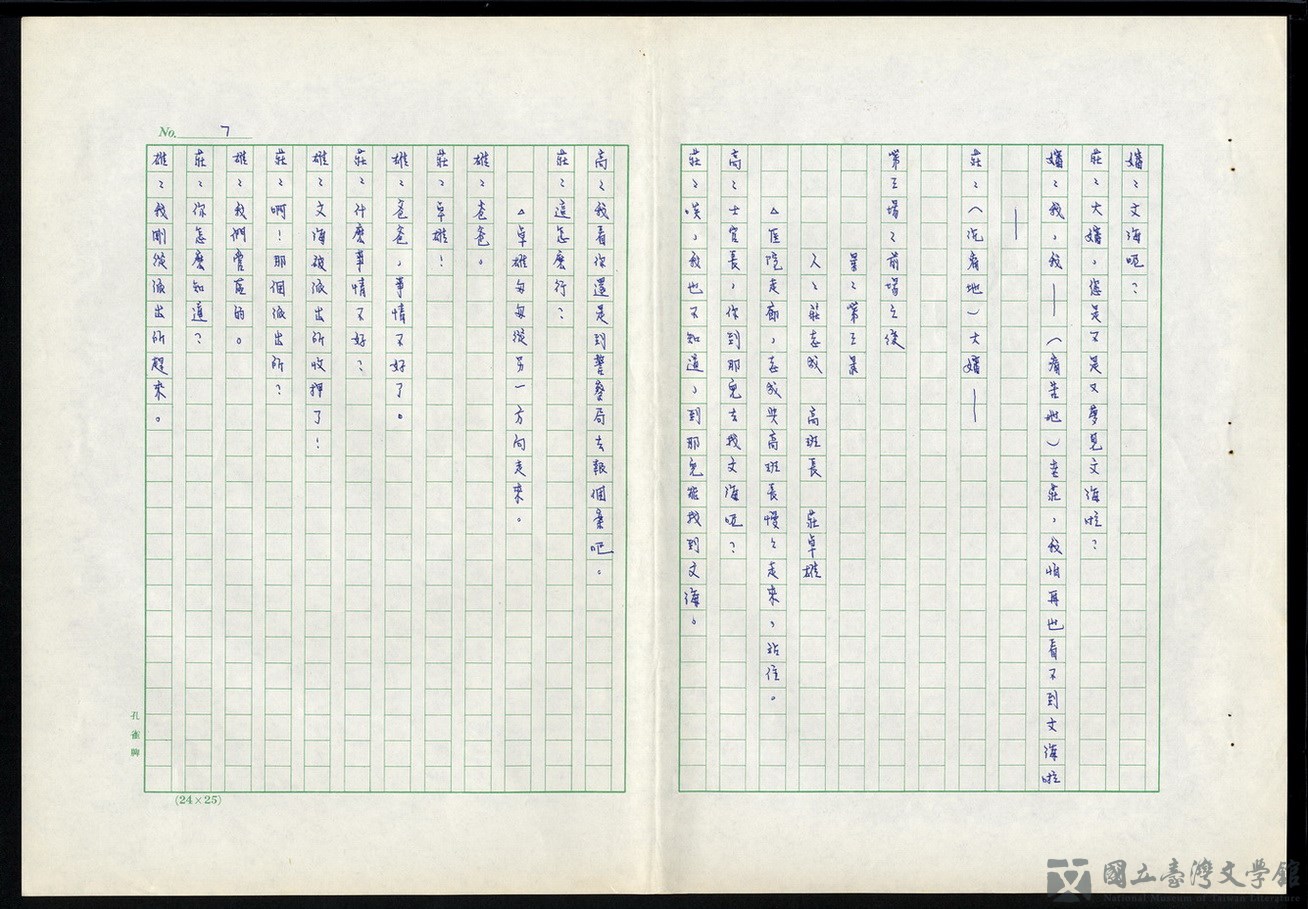 嬸：文海呢？
莊：大嬸，您是不是又夢見文海啦？
嬸：我，我——（痛苦地）老莊，我怕再也看不到文海啦
——
莊：（沉痛地）大嬸——
第三場：前場之後
景：第三景
人：莊志成　高班長　莊卓雄
△医院走廊，志成與高班長慢慢走來，站住。
高：士官長，你到那兒去找文海呢？
莊：唉，我也不知道，到那兒能找到文海。
No. 7
高：我看你還是到警察局去報個案吧。
莊：這怎麼行？
△卓雄匆匆從另一方向走來。
雄：爸爸。
莊：卓雄！
雄：爸爸，事情不好了。
莊：什麼事情不好？
雄：文海被派出所收押了！
莊：啊！那個派出所？
雄：我們管區的。
莊：你怎麼知道？
雄：我剛從派出所趕來。
孔雀牌
(24×25)
國立臺灣文學館
National Museum of Taiwan Literature